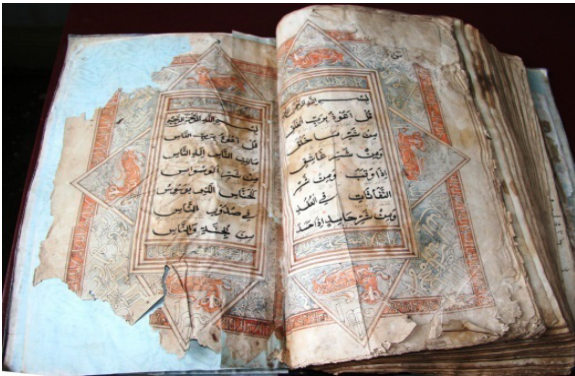 بسم الله الرحمن الرحيم
قل اعوذ برب الفلق
من شر ما خلق
ومن شر غاسق
اذا وقب ومن شر
النفاثات في العقد
ومن شر حاسد اذا حسد
بسم الله الرحمن الرحيم
قل اعوذ برب الناس
ملك الناس اله الناس
من شر الوسواس
الخناس الذي يوسوس
في صدور الناس
من الجنة والناس